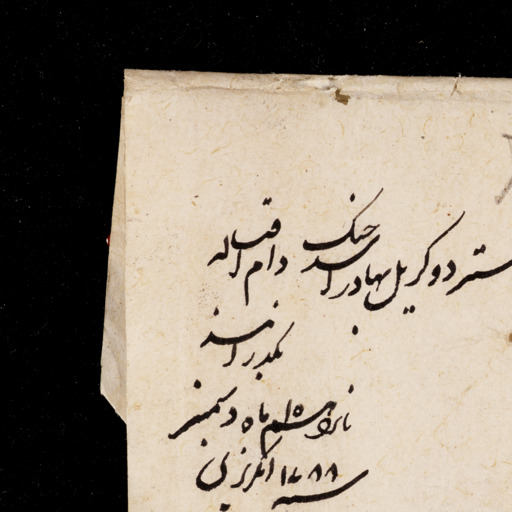 ستر دوکریل بهادر اسد جنک دام اقباله
بگذرانند
پانزدهم ماه دسمبر
سنه ۱۷۸۸ انگریزی